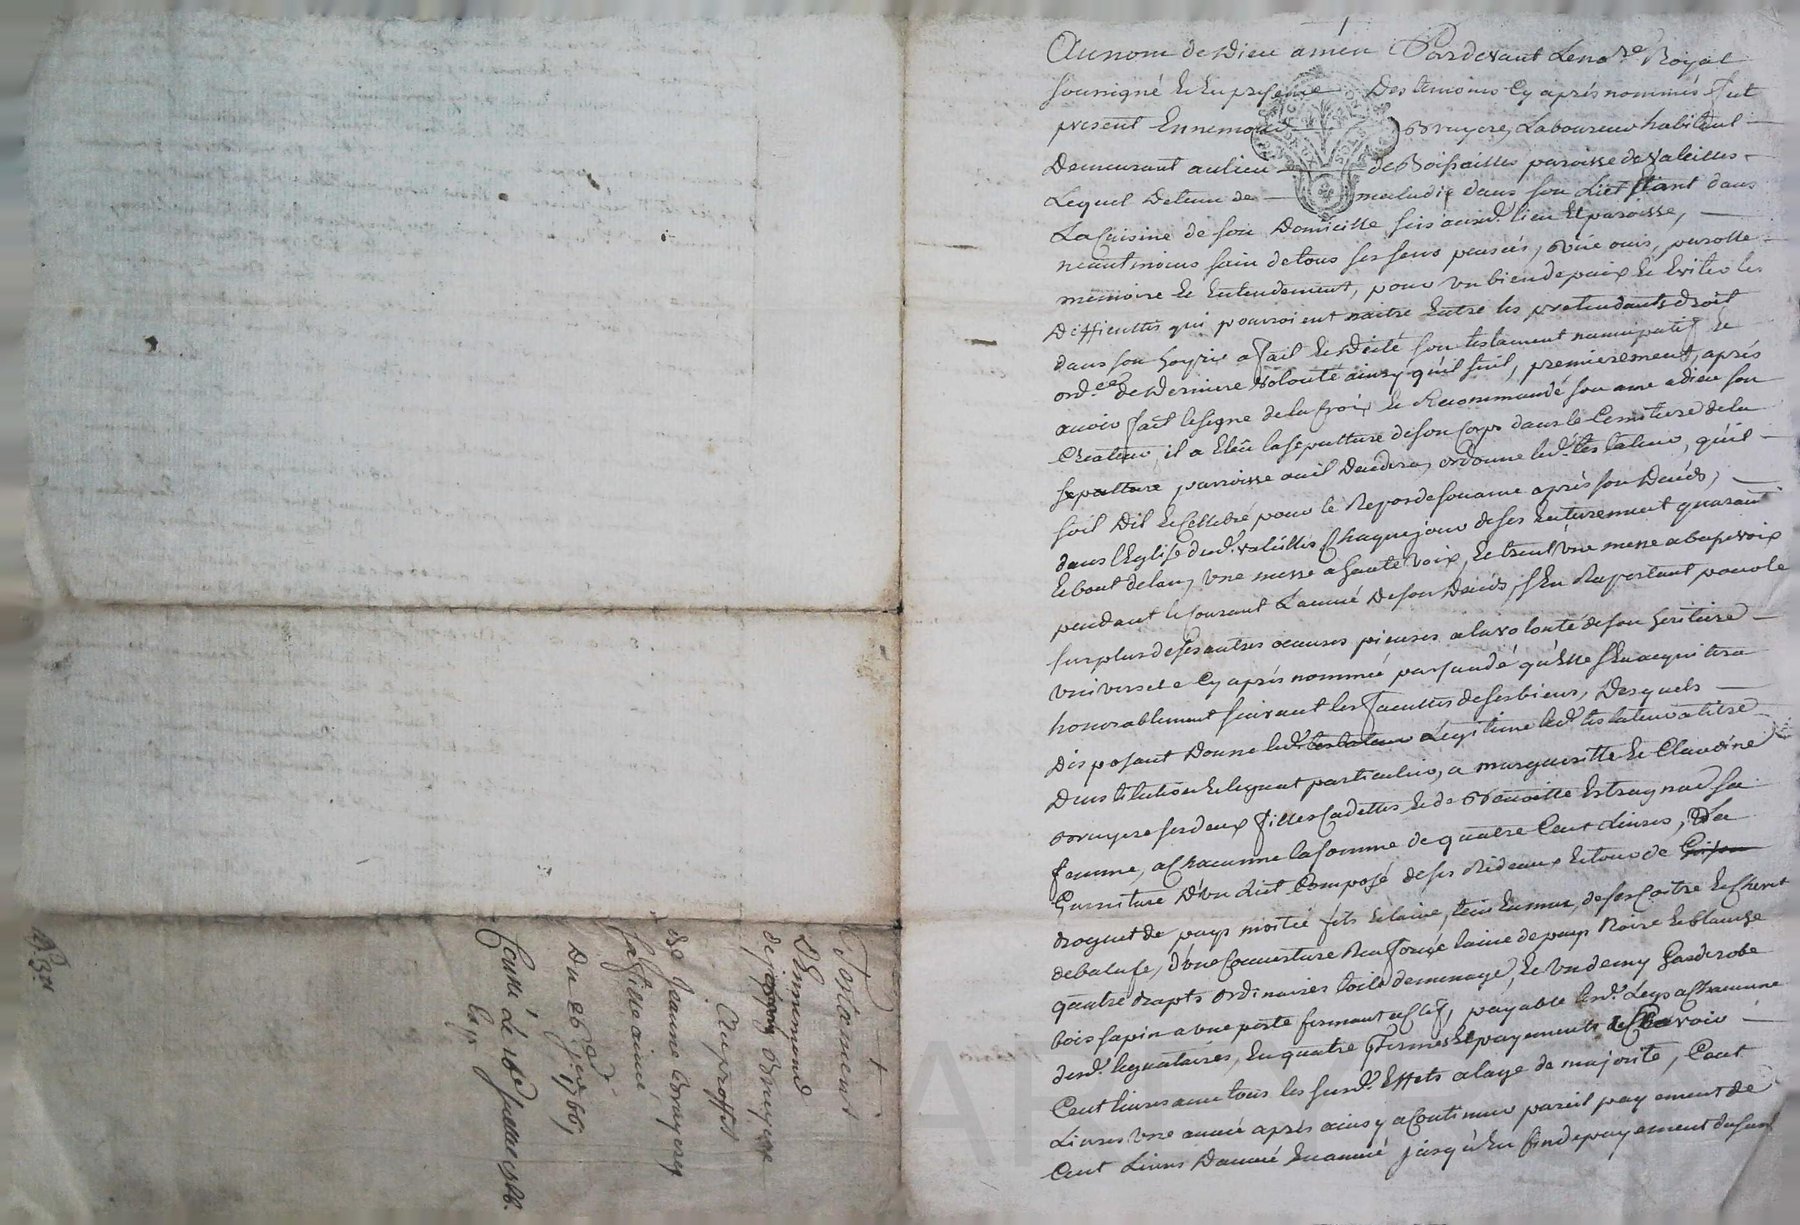 Au nom de Dieu amen Pardevant Le no.re Royal
soussigné Et En presence Des temoins Cy après nommés fut
present Ennemond Bruyere, Laboureur habitant
Demeurant au lieu de Boissailles paroisse de Valeilles
Lequel Detenu de maladie dans son Lict Etant dans
La Cuisine de son Domicille sis aud.t lieu Et paroisse,
neantmoins sain de tous ses sens pensées, vüe ouie, parolle
memoire Et Entendement, pour un bien de paix Et Eviter les
Difficultés qui pourroient naitre Entre les pretendants droit
dans son hoyrie a fait Et Dicté son testament nuncupatif Et
ord.ce De Derniere volonté ainsy qu'il suit, premierement, après
avoir fait le signe de la Croix Et Recommandé son ame a dieu son
Createur, il a Eleü la sepulture de son Corps dans le Cemitiere de la
sepulture parroisse ou il Decedera, ordonne led.t testateur, qu'il
soit Dit Et Cellebré pour le Repos de son ame après son Decés,
dans l'Eglise dud.t valeilles Chaque jour de ses Enterrement quarantal
Et bout de lan, une messe a haute voix, Et trente une messe a basse voix
pendant le Courant L'année De son Decés, s'En Raportant pour le
surplus de ses autres oeuvres pieuses a la volonté de son heritiere
universelle Cy après nommée persuadé qu'Elle s'En acquitera
honorablement suivant les facultés de ses biens, Desquels
Disposant Donne led.t testateur Legitime led.t testateur a titre
D'institution Et legat particulier, a margueritte Et Claudine
Bruyere ses deux filles Cadettes Et de Benoitte Estragnat sa
femme, a Chacunne la somme de quatre Cent Livres, La
Garniture D'un Lict Composé de ses Rideaux Entour de
droguet de pays moitié fils Et laine, de son Coitre Et Chevet
de baluse, d'une Couverture laine de pays Noire Et blanche
quatre draps ordinaires toile de menage, Et un demy Garderobe
bois sapin a une porte fermant a Clef, payable lesd.ts Legs a Chacunne
desd.t legataires, En quatre termes Et payements scavoir
Cent livres avec tous les susd.ts Effets a l'age de majorité, Cent
Livres une année après ainsy a Continuer pareil payement de
Cent Livres D'année En année jusqu'En fin de payement du sus
Testament
d'Ennemond
de Bruyere
Au proffit
de Jeanne Bruyere
sa fille ainée
Du 26 1766
Conllé Le 16e